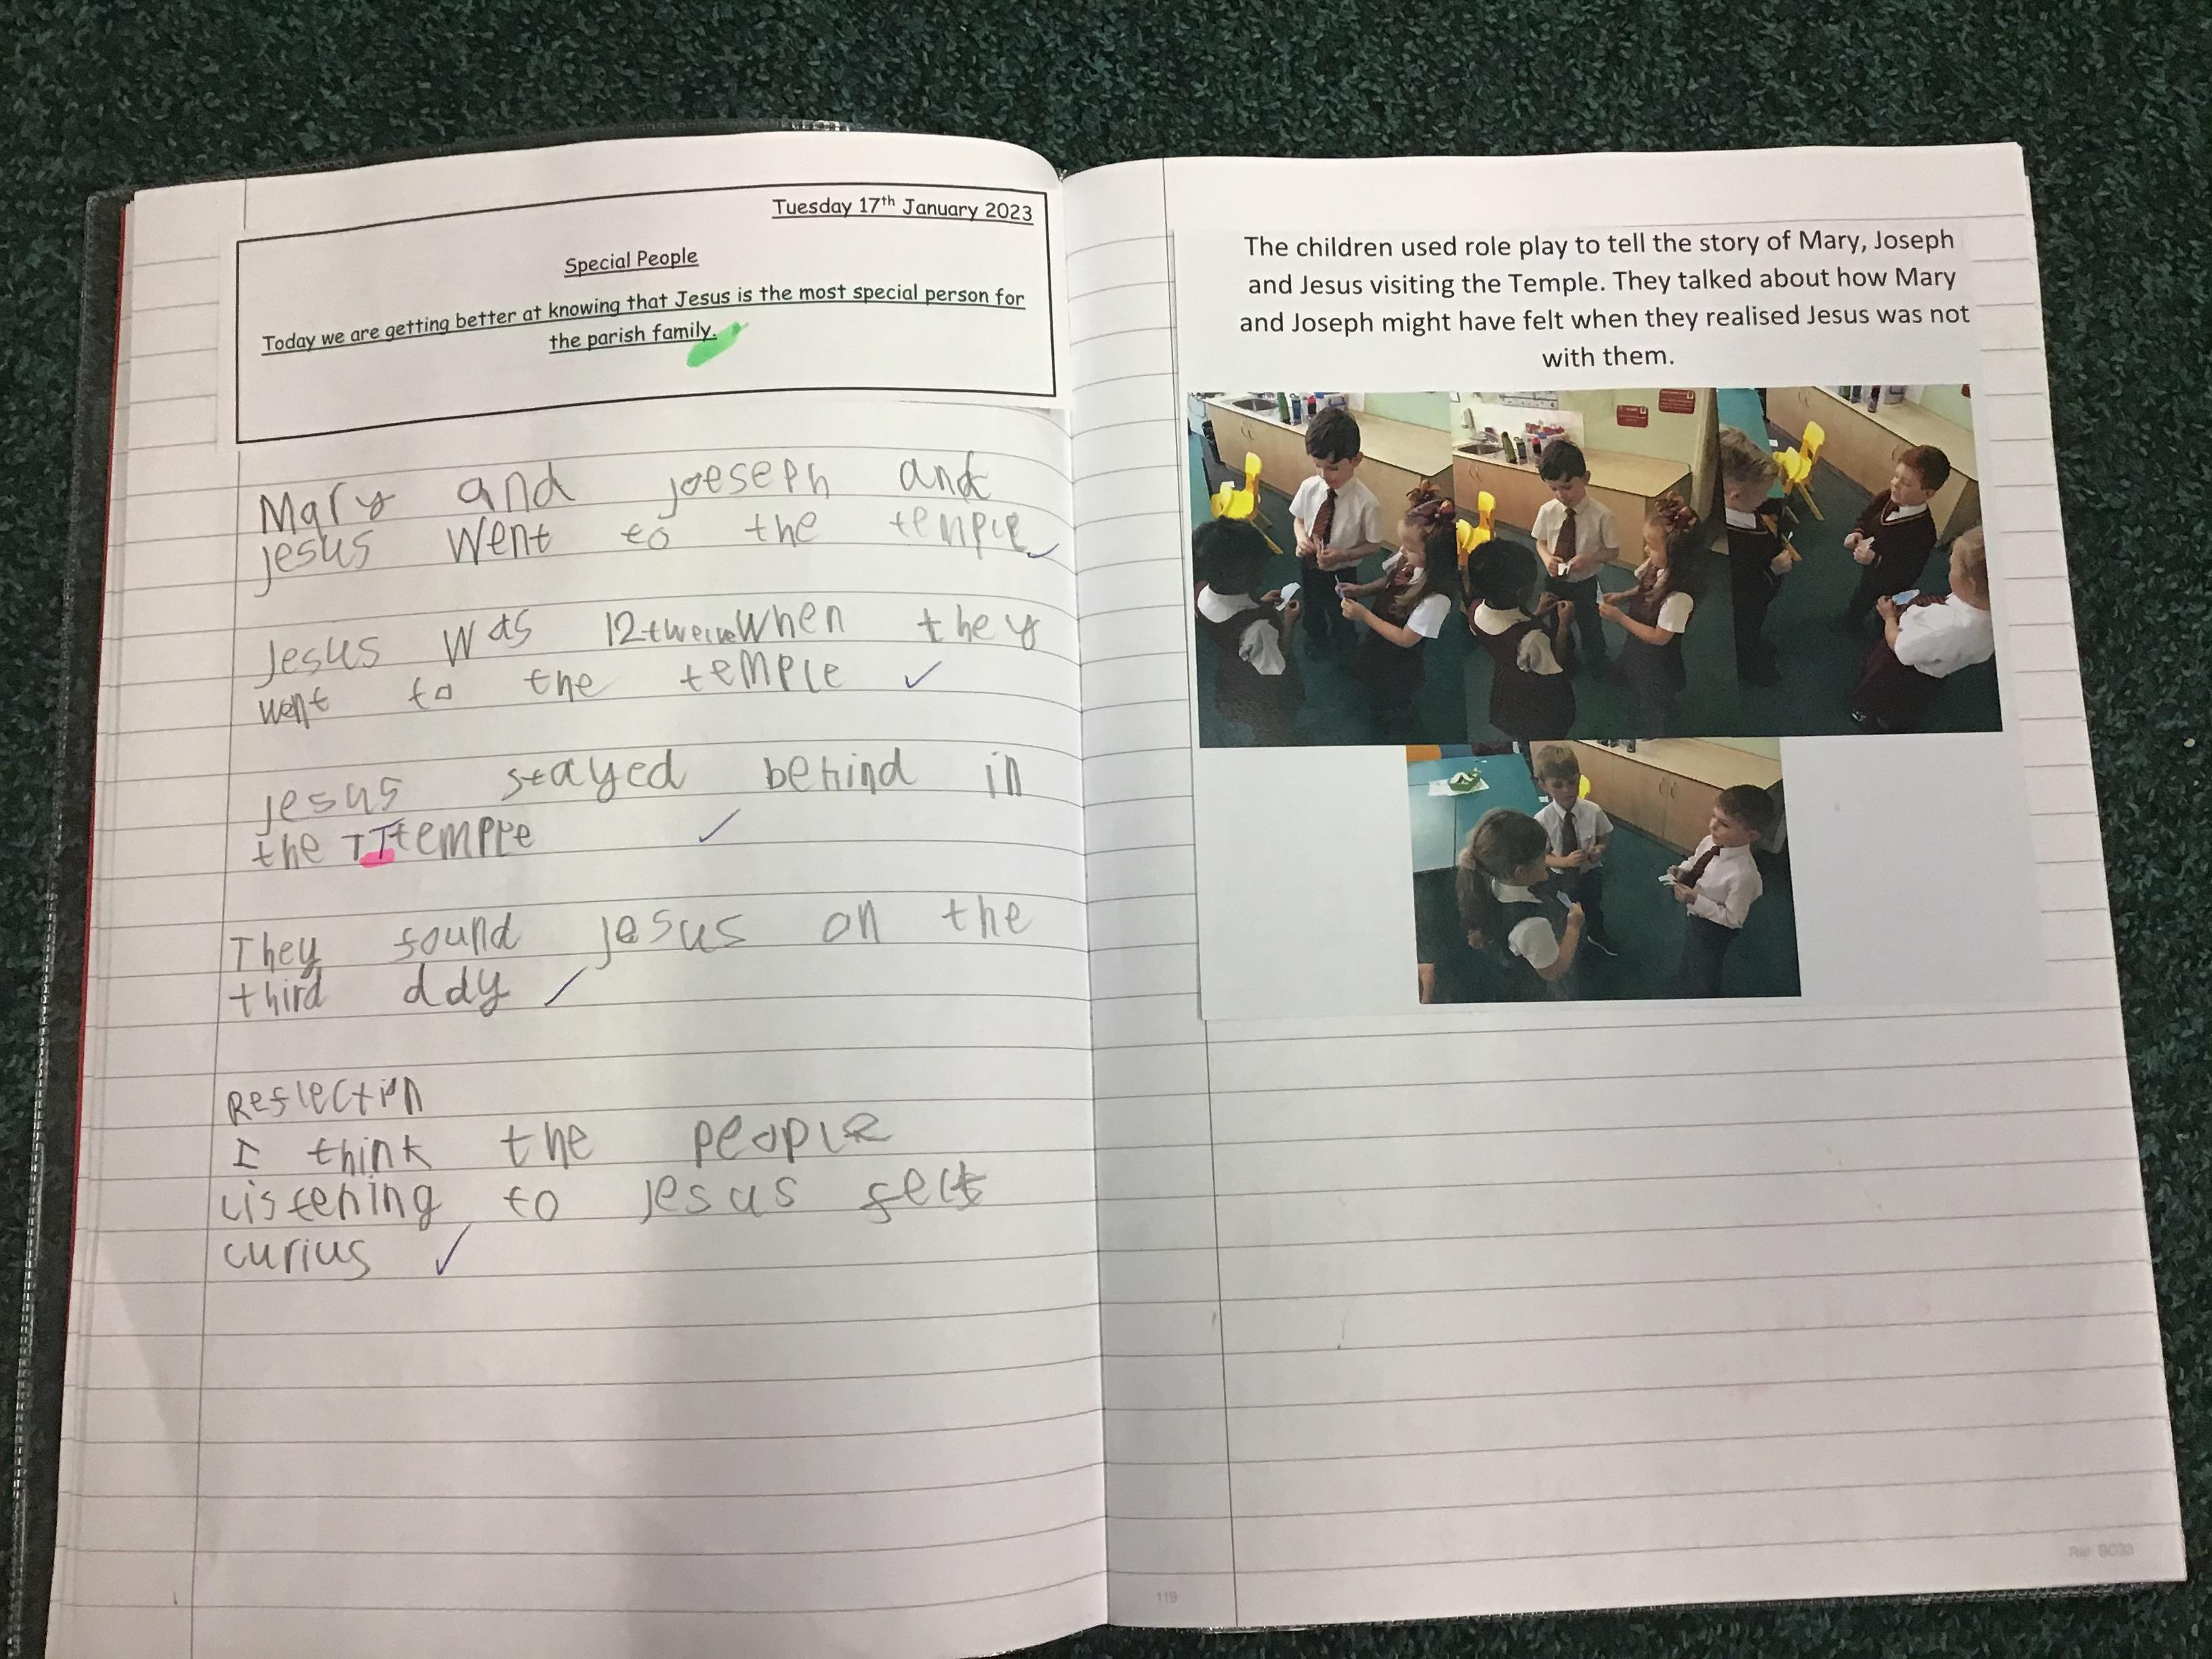 Tuesday 17th January 2023
Special People
Today we are getting better at knowing that Jesus is the most special person for
the parish family.
Mary and joeseph and
jesus went to the temple
Jesus was 12 twelve when they
went to the temple
jesus stayed behind in
the TTtemple
They found jesus on the
third day
Reflectin
I think the people
Listening to jesus felt
curius
The children used role play to tell the story of Mary, Joseph
and Jesus visiting the Temple. They talked about how Mary
and Joseph might have felt when they realised Jesus was not
with them.
119